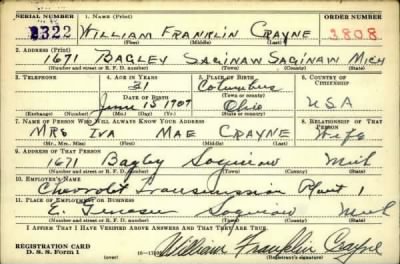 SERIAL NUMBER 1. NAME (Print) ORDER NUMBER
2322 WILLIAM FRANKLIN CRAYNE 3808
(First) (Middle) (Last)
2. ADDRESS (Print)
1671 BAGLEY SAGINAW SAGINAW MICH
(Number and street or R. F. D. number) (Town) (County) (State)
3. TELEPHONE 4. AGE IN YEARS 5. PLACE OF BIRTH 6. COUNTRY OF CITIZENSHIP
31 Columbus
DATE OF BIRTH (Town or county)
June 15 1909 Ohio USA
(Exchange) (Number) (Mo.) (Day) (Yr.) (State or country)
7. NAME OF PERSON WHO WILL ALWAYS KNOW YOUR ADDRESS 8. RELATIONSHIP OF THAT PERSON
MRS IVA MAE CRAYNE Wife
(Mr., Mrs., Miss) (First) (Middle) (Last)
9. ADDRESS OF THAT PERSON
1671 Bagley Saginaw Mich
(Number and street or R. F. D. number) (Town) (County) (State)
10. EMPLOYER'S NAME
Chevrolet Transmission Plant 1
11. PLACE OF EMPLOYMENT OR BUSINESS
E. Genesee Saginaw Mich
(Number and street or R. F. D. number) (Town) (County) (State)
I AFFIRM THAT I HAVE VERIFIED ABOVE ANSWERS AND THAT THEY ARE TRUE.
REGISTRATION CARD
D. S. S. Form 1 (over) William Franklin Crayne
(Registrant's signature)